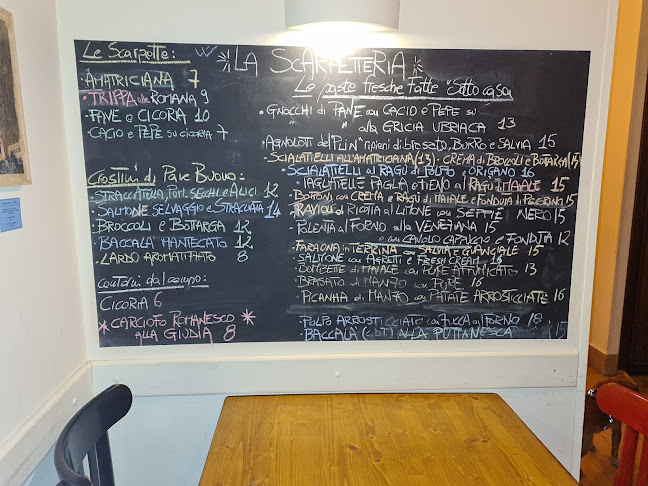 LA SCARPETTERIA
Le Scarpette:
AMATRICIANA 7
TRIPPA alla ROMANA 9
PANE e CICORIA 10
CACIO e PEPE su CICORIA 7
Crostini di Pane Buono:
STRACCIATELLA, POM. SECCHI e ALICI 12
SALMONE SELVAGGIO e STRACCIATA 14
BROCCOLI e BOTTARGA 12
BACCALA' MANTECATO 12
LARDO AROMATIZZATO 8
contorni dal campo:
CICORIA 6
* CARCIOFO ROMANESCO *
ALLA GIUDIA 8
Le paste fresche fatte "Sotto casa"
GNOCCHI di PANE con CACIO e PEPE su
" " alla GRICIA UBRIACA 13
AGNOLOTTI del PLIN ripieni di brasato, BURRO e SALVIA 15
SCIALATIELLI ALL'AMATRICIANA (13) - CREMA di BROCCOLI e BOTARGA 15
SCIALATIELLI al RAGÙ di POLPO, ORIGANO 16
TAGLIATELLE PAGLIA e FIENO al RAGÙ di MAIALE 15
BOTTONI con CREMA e RAGÙ di MAIALE e FONDUTA di PECORINO
RAVIOLI di RICOTTA al LIMONE con SEPPIE NERO 15
POLENTA al FORNO alla VENEZIANA 15
e con CAVOLO CAPPUCCIO e FONDUTA 12
FARAONA in TERRINA con SALVIA e GUANCIALE 15
SALMONE con AGRETTI e FRESH CREAM 18
BOMBETTE di MAIALE con PURE AFFUMICATE 13
BRASATO di MANZO con PURE 16
PICANHA di MANZO con PATATE ARROSTICCIATE 16
POLPO ARROSTICCIATO con ZUCCA al FORNO 18
BACCALÀ (CBT) ALLA PUTTANESCA 15